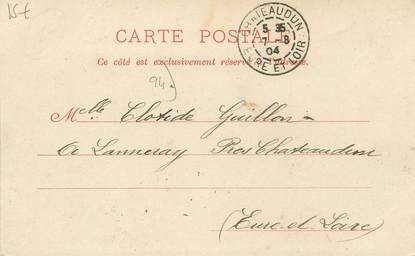 15€
CHATEAUDUN
5 35
7 - 8
04
EURE ET LOIR
CARTE POSTALE
Ce côté est exclusivement réservé à l'adresse.
94
Melle Clotide Guillon =
a Lanneray Pres Chateaudun
(Eure-et-Loire)